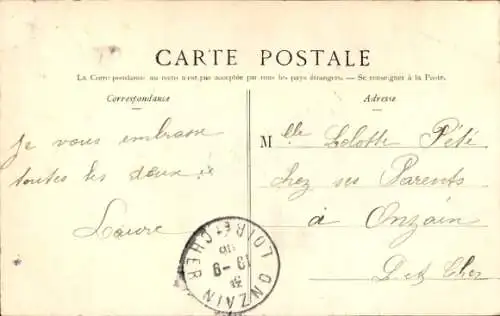 CARTE POSTALE
La Correspondance au recto n'est pas acceptée par tous les pays étrangers. — Se renseigner à la Poste.
Correspondance
Adresse
Je vous embrasse
toutes les deux
Laure
Mlle Lolotte Pété
chez ses Parents
à Onzain
L et Cher
ONZAIN
LOIR-ET-CHER